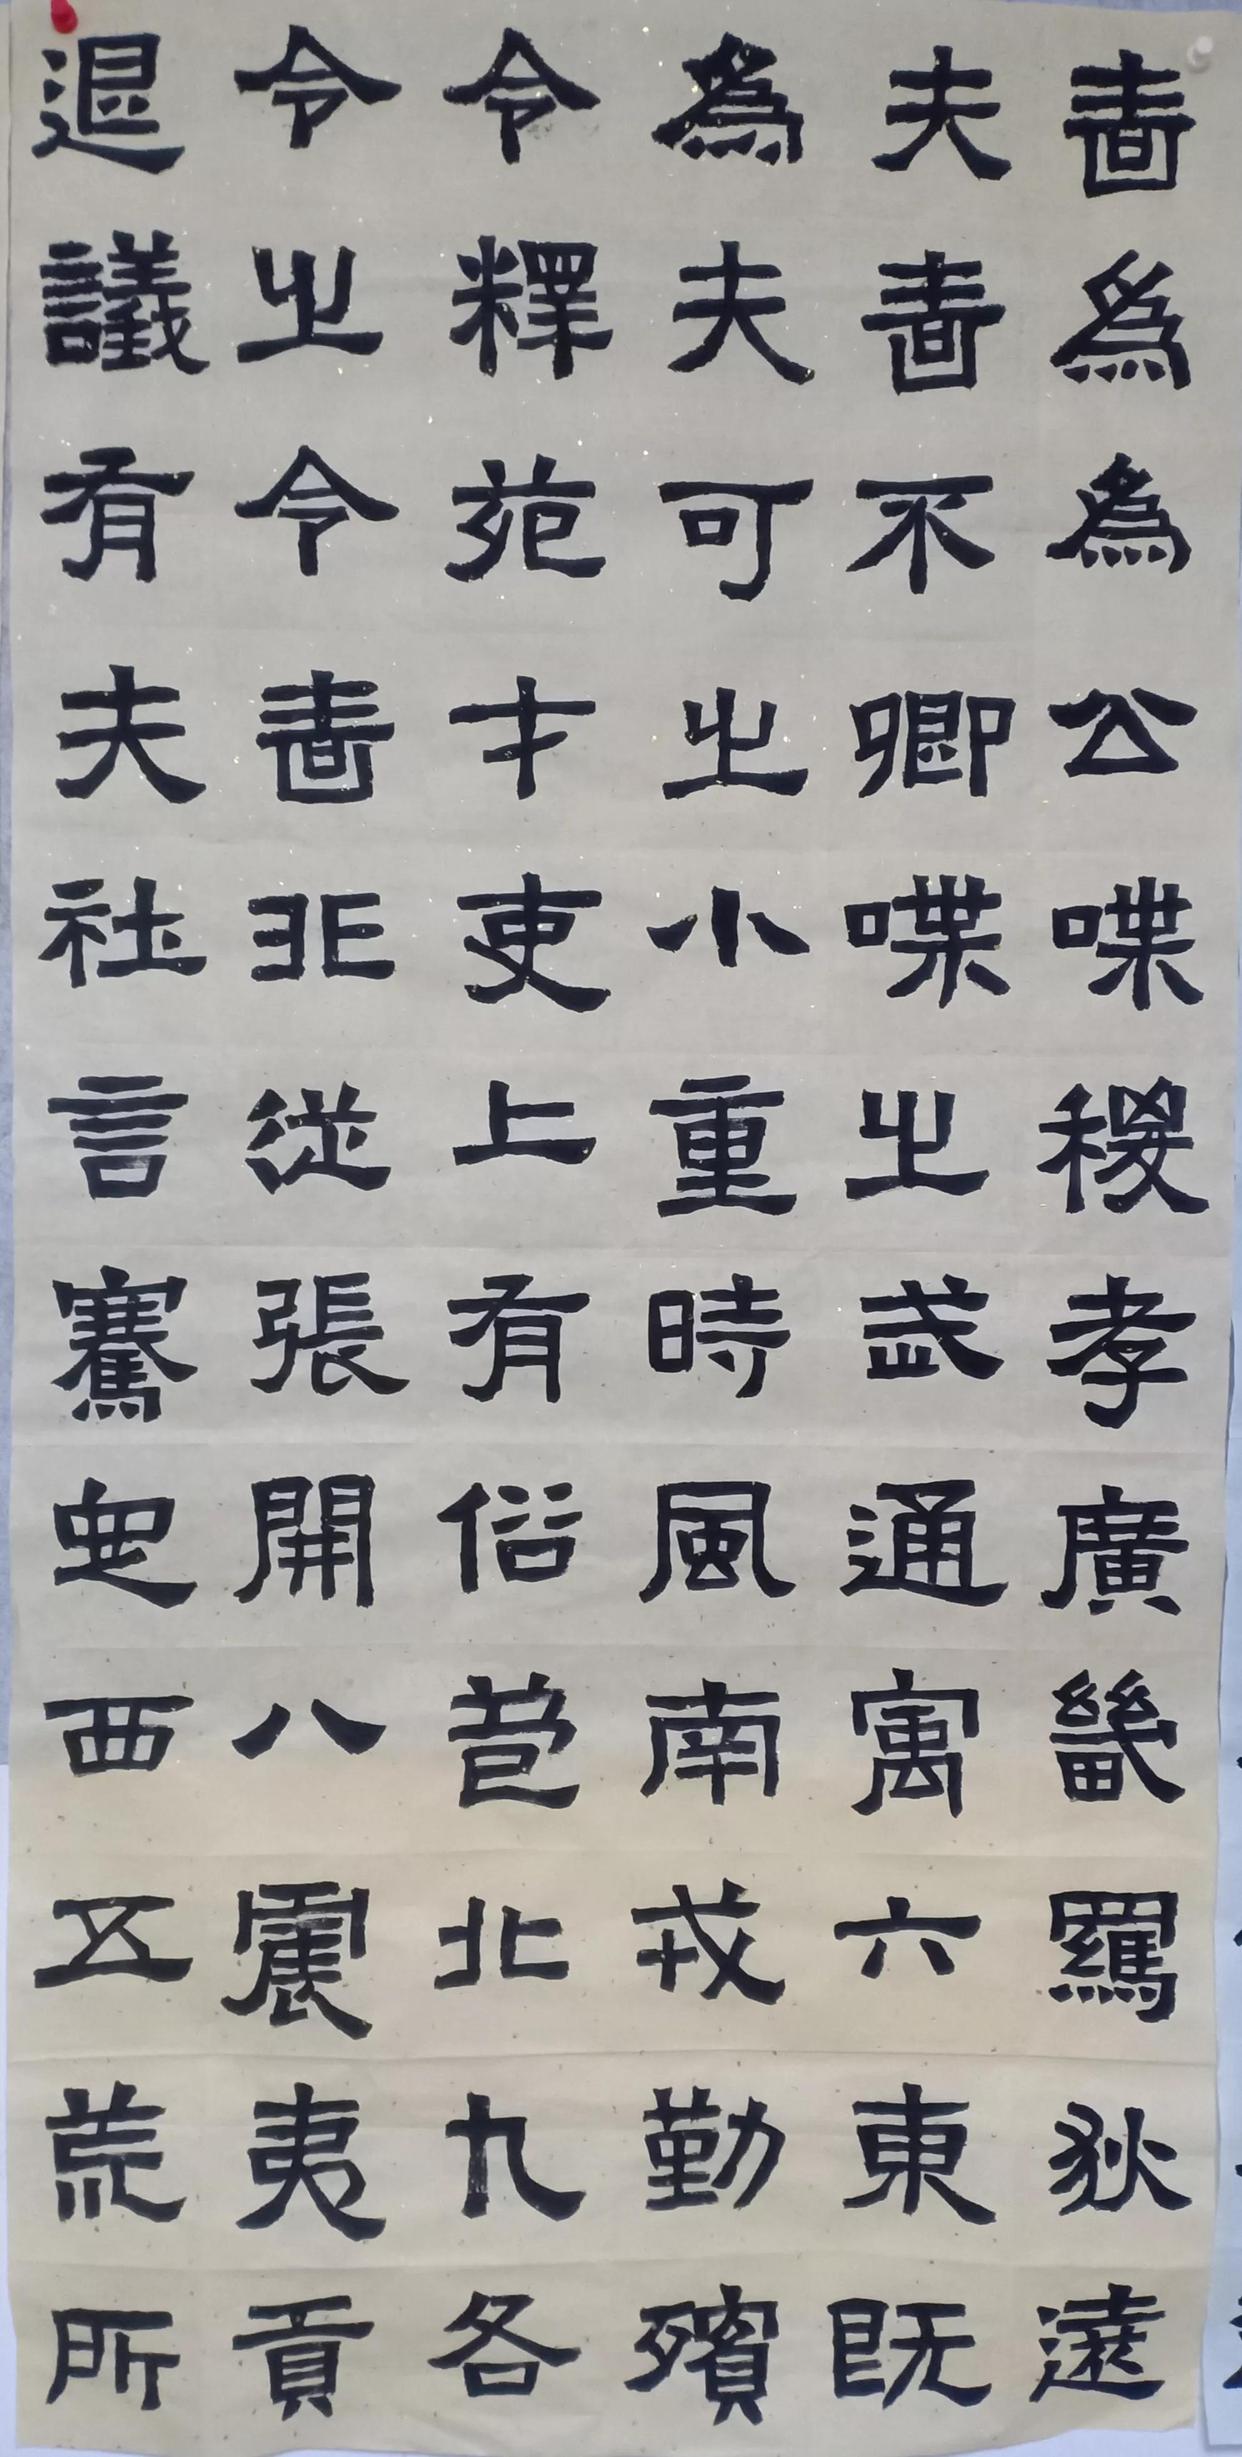 嗇夫為令令退
為嗇夫釋之議
為不可苑令有
公卿之才嗇夫
喋喋小吏非社
稷之重上從言
孝武時有張騫
廣通風俗開定
畿寓南苞八西
羈六戎北震五
狄東勤九夷荒
遠既殯各貢所